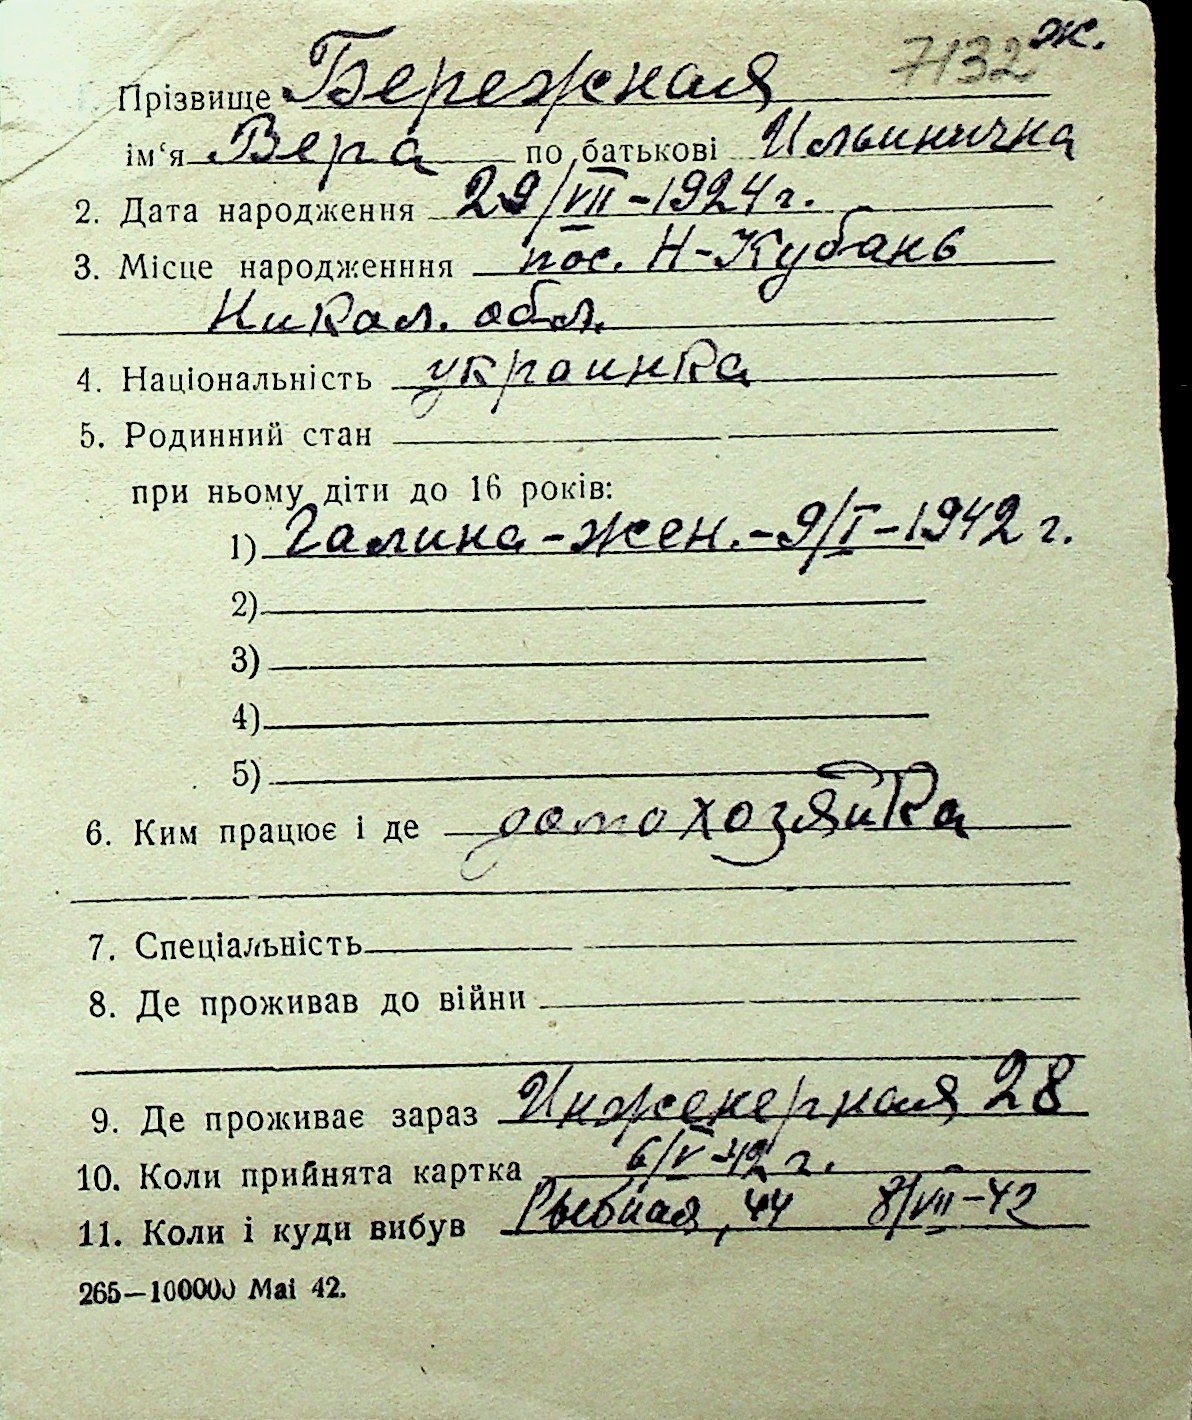 7132 ж.
Прізвище Бережная
ім‘я Вера по батькові Ильинична
2. Дата народження 29/VII-1924 г.
3. Місце народженння пос. Н-Кубань
Никол. обл.
4. Національність украинка
5. Родинний стан
при ньому діти до 16 років:
1) Галина-жен.-9/I-1942 г.
2)
3)
4)
5)
6. Ким працює і де домохозяйка
7. Спеціальність
8. Де проживав до війни
9. Де проживає зараз Инженерная 28
10. Коли прийнята картка 6/V-42 г.
11. Коли і куди вибув Рыбная, 44 8/VII-42
265—100000 Mai 42.